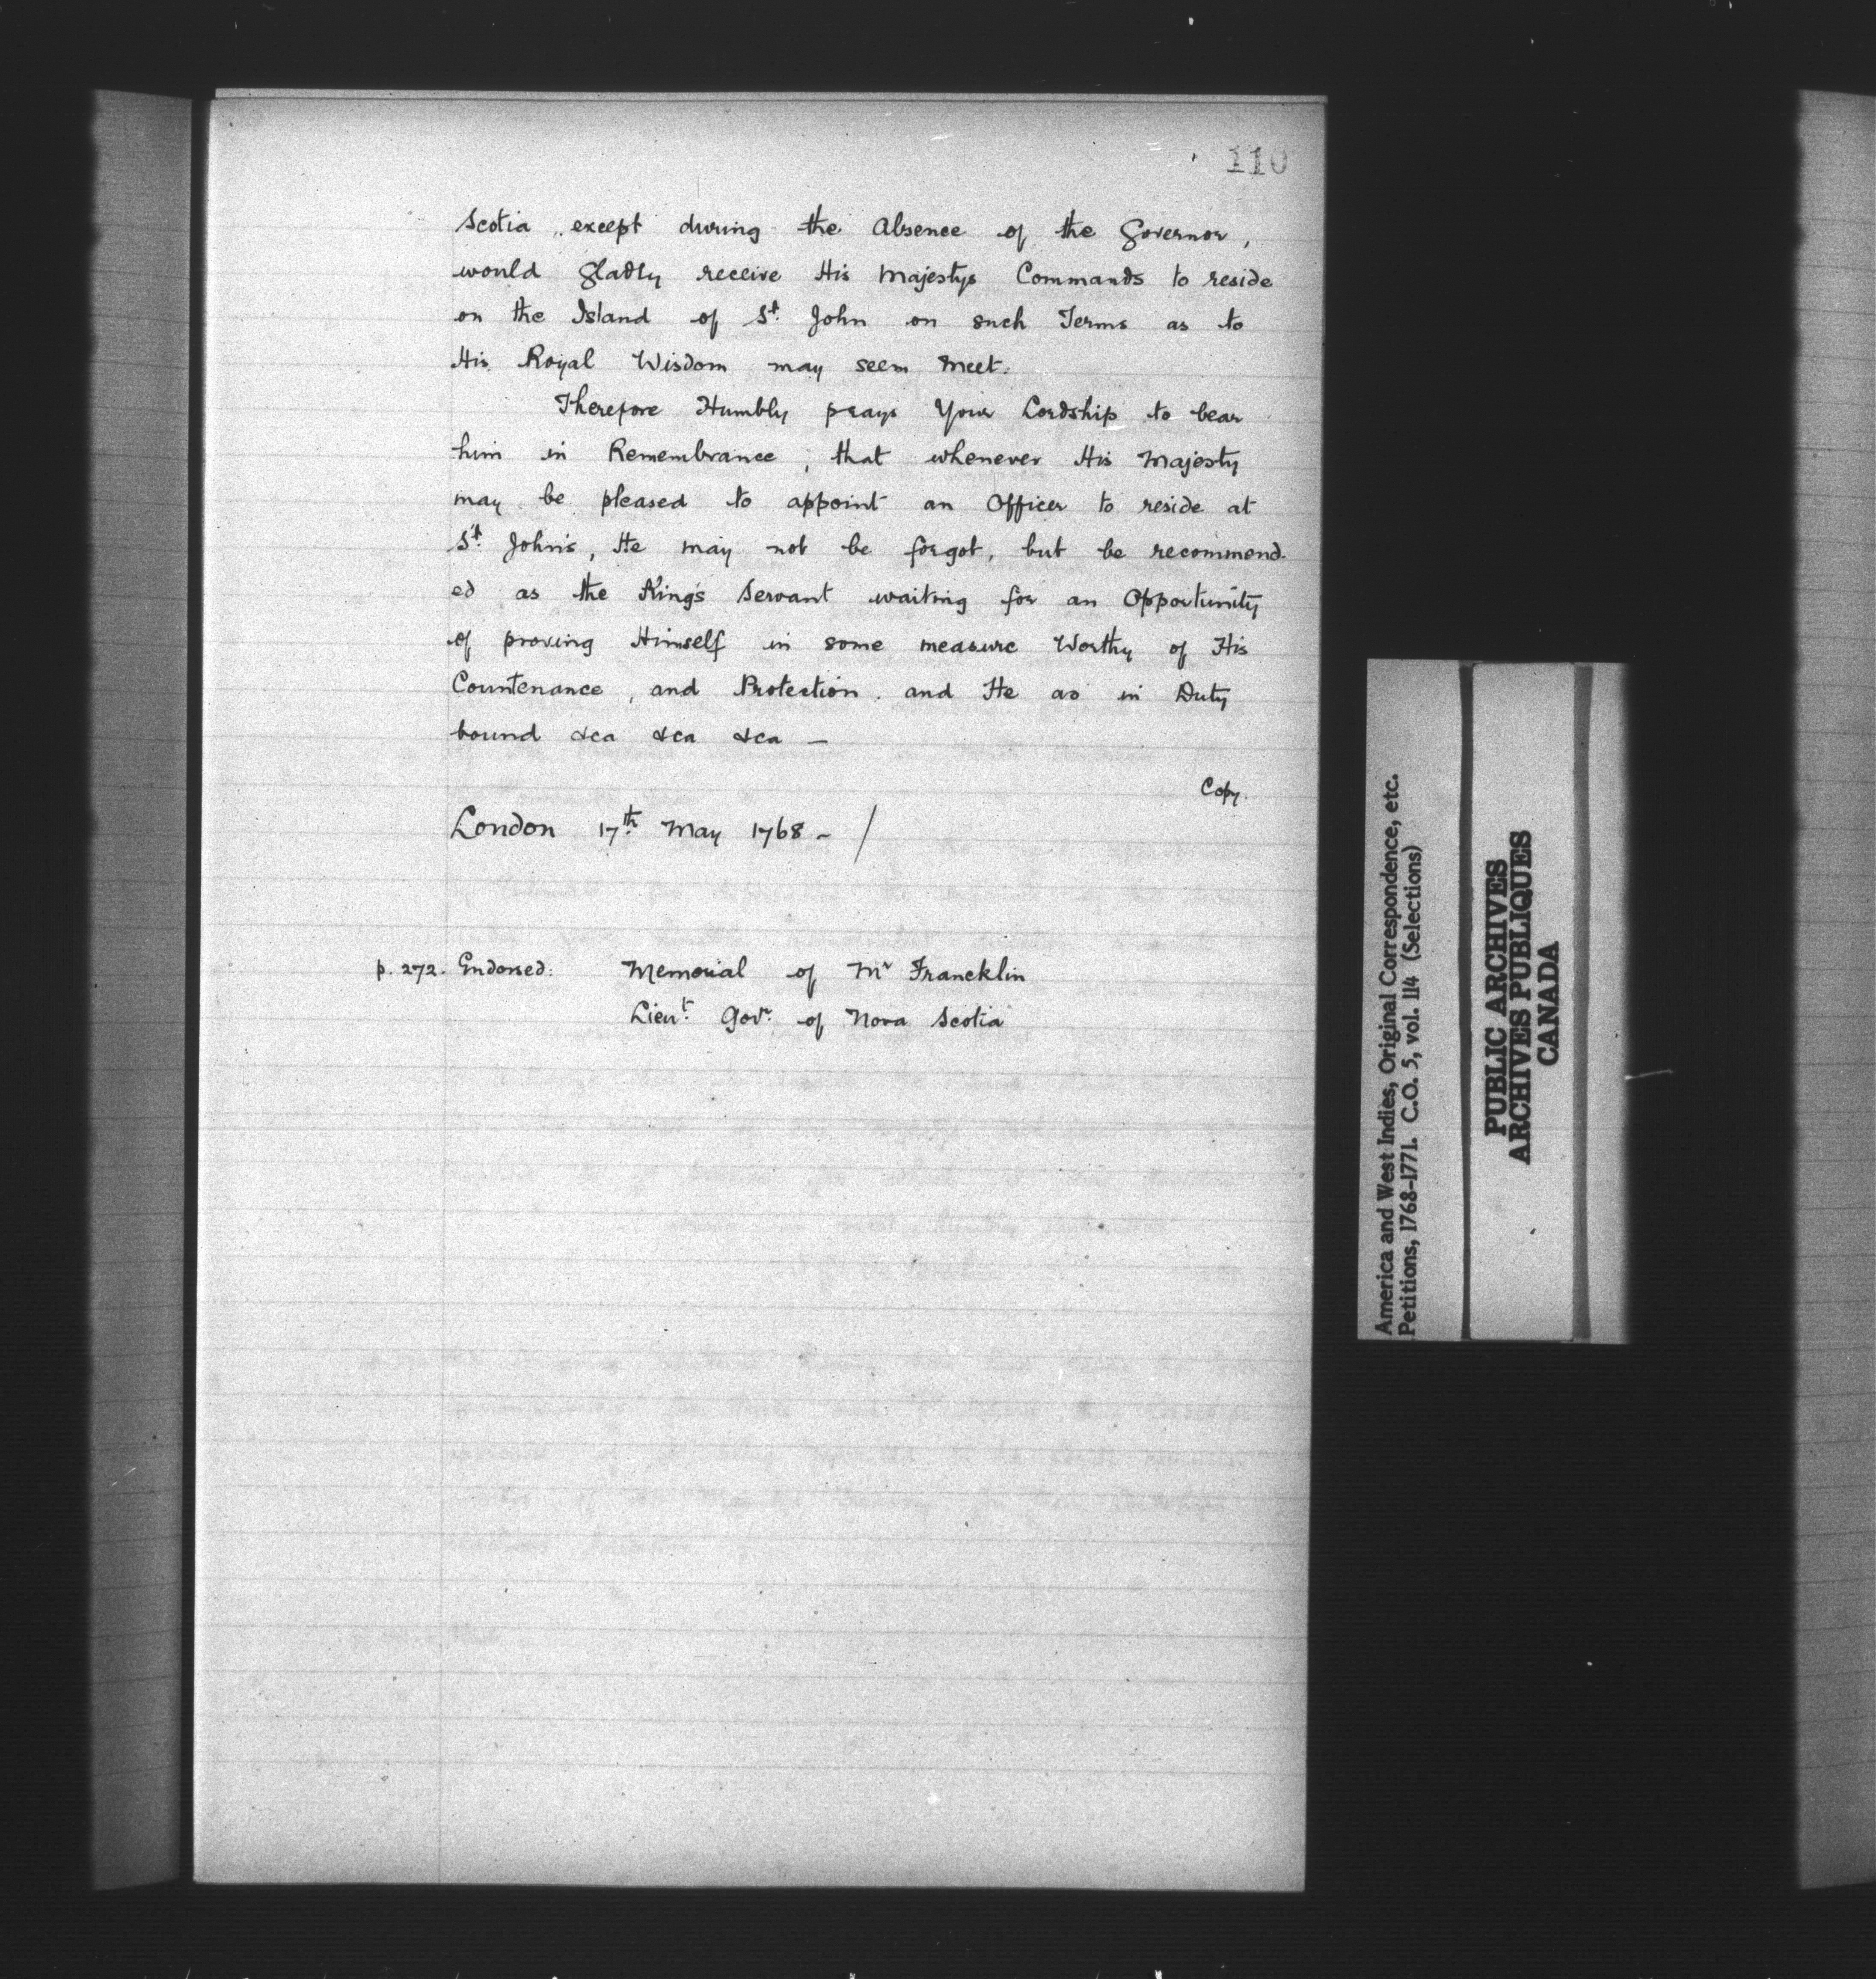 110
Scotia, except during the Absence of the Governor,
would gladly receive His Majestys Commands to reside
on the Island of St. John on such Terms as to
His Royal Wisdom may seem meet.
Therefore Humbly prays Your Lordship to bear
him in Remembrance, that whenever His Majesty
may be pleased to appoint an Officer to reside at
St. John's, He may not be forgot, but be recommend-
ed as the King's Servant waiting for an Opportunity
of proving Himself in some measure Worthy of His
Countenance, and Protection. and He as in Duty
bound &ca &ca &ca —
Copy.
London 17th. May 1768 - /
p. 272. Endorsed: Memorial of Mr Francklin
Lieut. Govr. of Nova Scotia
America and West Indies, Original Correspondence, etc.
Petitions, 1768-1771. C.O. 5, vol. 114 (Selections)
PUBLIC ARCHIVES
ARCHIVES PUBLIQUES
CANADA